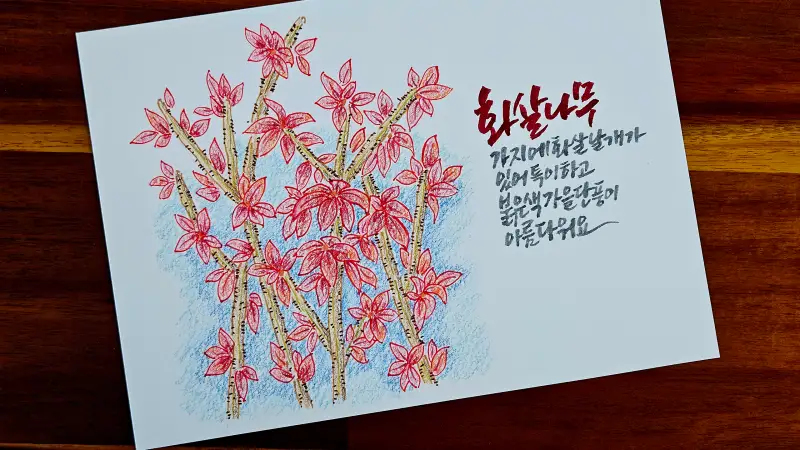 화살나무
가지에 화살날개가
있어 특이하고
붉은색 가을단풍이
아름다워요